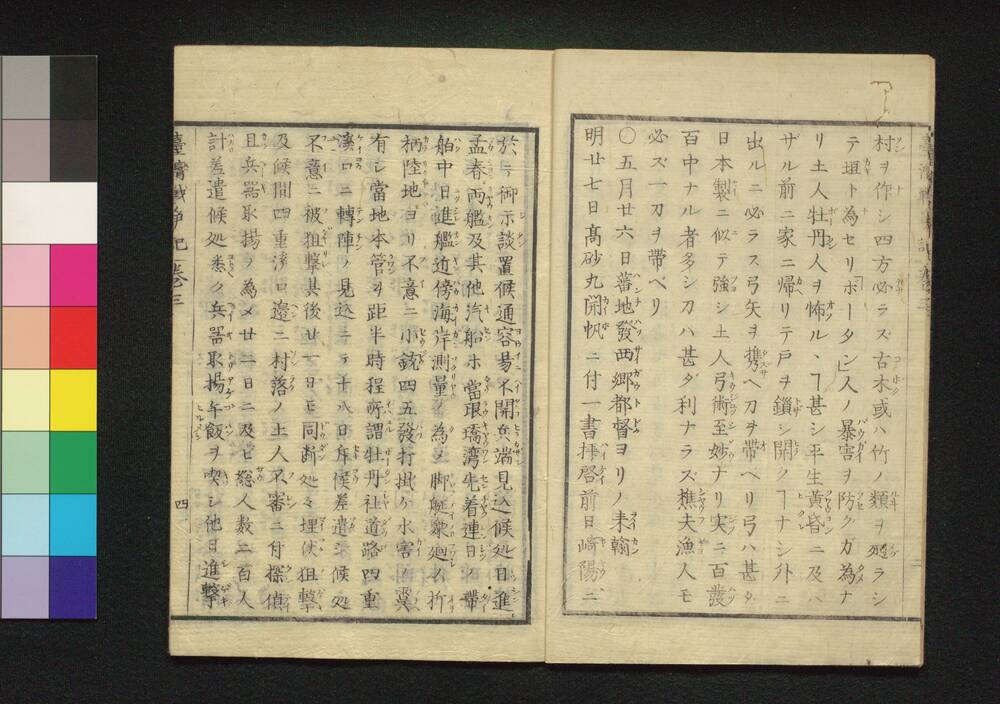 村ヲ作シ四方必ラズ古木或ハ竹ノ類ヲ廻ラシ
テ垣ト為セリボータン人ノ暴害ヲ防グガ為ナ
リ土人牡丹人ヲ怖ルヽヿ甚シ平生黄昏ニ及ハ
ザル前ニ家ニ帰リテ戸ヲ鎖シ開ノヿナシ外ニ
出ルニ必ラス弓矢ヲ携ヘ刀ヲ帯ヘリ弓ハ甚タ
日本製ニ似テ強シ土人弓術至妙ナリ実ニ百發
百中ナル者多シ刀ハ甚ダ利ナラズ樵夫漁人モ
必ズ一刀ヲ帶ベリ
〇五月廿六日蕃地發西郷都督ヨリノ来翰
明廿七日髙砂丸開帆ニ付一書拝啓前日﨑陽ニ
於テ御示談置候通容易不開兵端見込候処日進
孟春両艦及其他汽船ホ當琅𤩝湾先着連日ノ帶
舶中日進艦近傍海岸測量ノ為メ脚艇乗廻ノ折
柄陸地ヨリ不意ニ小銃四五發打掛ケ水害ノ冀
有シ當地本管ヲ距半時程所謂牡丹社道路四重
溪口ニ轉陣ノ見込ニテ十八日斥候差遣シ候処
不意ニ被狙撃其後廿一日モ同断処々埋伏狙撃
及候間四重溪口ノ邉ニ村落ノ土人不審ニ付探偵
且兵噐取揚ノ為メ廿二日ニ及ヒ総人数二百人
計差遣候処悉ク兵噐取揚午飯ヲ喫シ他日進撃
臺灣戦争記 巻三
四